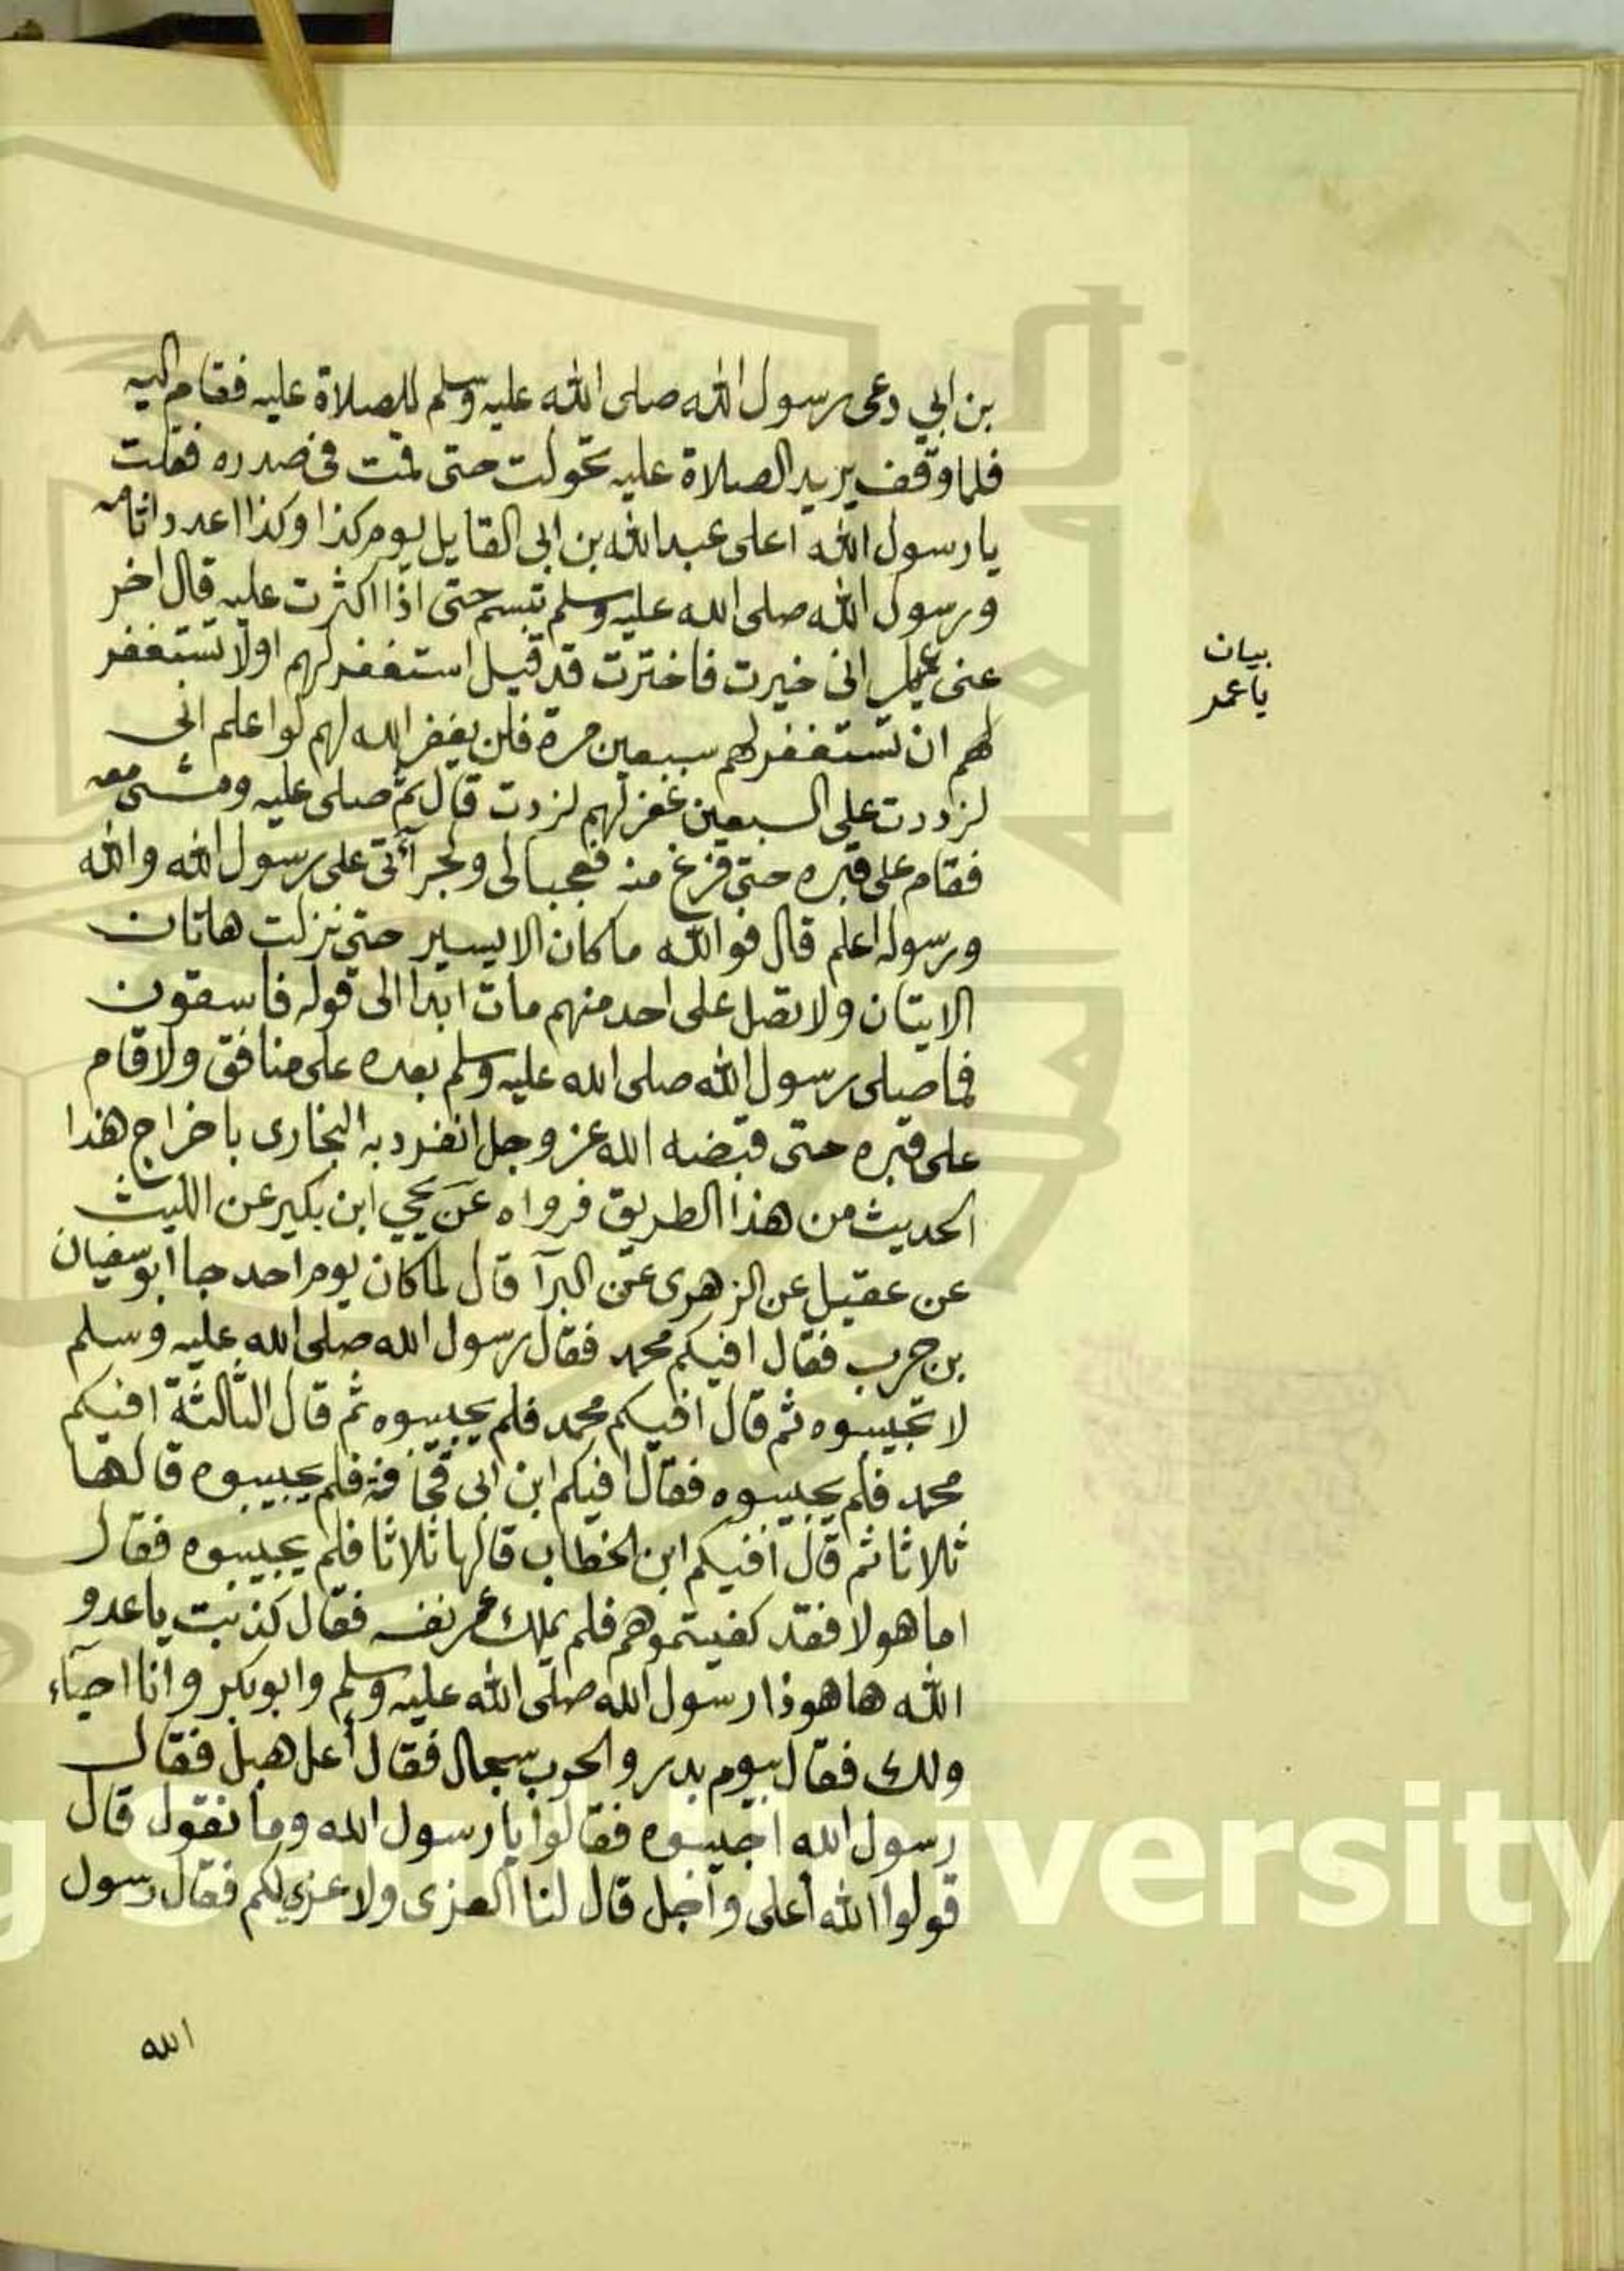 بن ابي دعى رسول الله صلى الله عليه وسلم للصلاة عليه فقام اليه
فلما وقف يريد الصلاة عليه تحولت حتى قمت في صدره فقلت
يا رسول الله اعلى عبد الله بن ابي القايل يوم كذا وكذا اعدد اثامه
ورسول الله صلى الله عليه وسلم تبسم حتى اذا اكثرت عليه قال اخر
عنى عمار انى خيرت فاخترت قد قيل استغفر لهم اولا تستغفر
لهم ان تستغفر لهم سبعين مرة فلن يغفر الله لهم لو اعلم انى
لزددت على السبعين غفر لهم لزدت قال ثم صلى عليه ومشى معه
فقام على قبره حتى فرغ منه فعجبا لى ولجرآتى على رسول الله والله
ورسوله اعلم قال فو الله ما كان الا يسير حتى نزلت هاتان
الايتان ولا تصل على احد منهم مات ابدا الى قوله فاسقون
فما صلى رسول الله صلى الله عليه وسلم بعده على منافق ولا قام
على قبره حتى قبضه الله عز وجل انفرد به البخارى باخراج هذا
الحديث من هذا الطريق فرواه عن يحيي ابن بكير عن الليث
عن عقيل عن الزهرى عن البرآ قال لما كان يوم احد جا ابو سفيان
بن حرب فقال افيكم محمد فقال رسول الله صلى الله عليه وسلم
لا تجيبوه ثم قال افيكم محمد فلم يجيبوه ثم قال الثالثة افيكم
محمد فلم يجيبوه فقال افيكم ابن ابى قحافة فلم يجيبوه قالها
ثلاثا ثم قال افيكم ابن الخطاب قالها ثلاثا فلم يجيبوه فقال
اما هولا فقد كفيتموهم فلم يملك عمر نفسه فقال كذبت يا عدو
الله ها هو ذا رسول الله صلى الله عليه وسلم وابو بكر وانا احيآء
ولك فقال بيوم بدر والحرب سجال فقال أعل هبل فقال
رسول الله اجيبوه فقالوا يا رسول الله وما نقول قال
قولوا الله أعلى وأجل قال لنا العزى ولا عزى لكم فقال رسول
الله
بيان
يا عمر